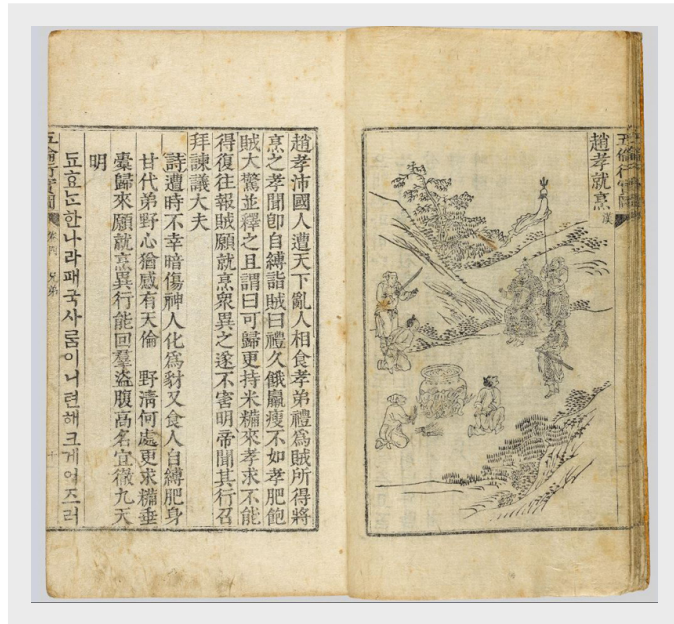 五倫行實圖
趙孝就烹 漢
趙孝沛國人遭天下亂人相食孝弟禮爲賊所得將
烹之孝聞卽自縛詣賊曰禮久餓羸瘦不如孝肥飽
賊大驚並釋之且謂曰可歸更持米糒來孝求不能
得復往報賊願就烹衆異之遂不害明帝聞其行召
拜諫議大夫
詩遭時不幸暗傷神人化爲豺又食人自縛肥身
甘代弟野心猶感有天倫 野淸何處更求糒垂
橐歸來願就烹異行能回羣盜腹高名宜徹九天
明
됴효ᄂᆞᆫ한나라패국사ᄅᆞᆷ이니텬해크게어즈러
五倫行實圖 卷四 兄弟